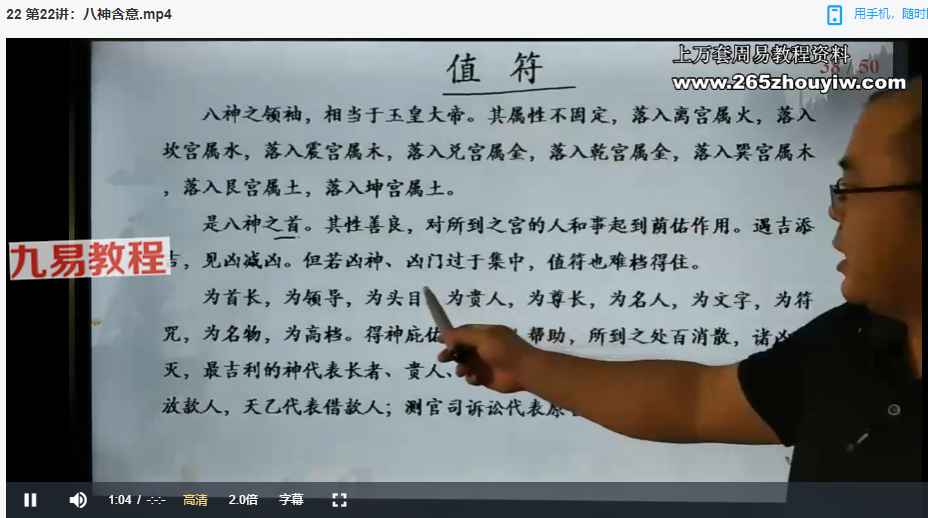 22 第22讲：八神含意.mp4
用手机，随时
上万套周易教程资料
38 / 50
www.265zhouyiw.com
值符
八神之领袖，相当于玉皇大帝。其属性不固定，落入离宫属火，落入
坎宫属水，落入震宫属木，落入兑宫属金，落入乾宫属金，落入巽宫属木
，落入艮宫属土，落入坤宫属土。
是八神之首。其性善良，对所到之宫的人和事起到荫佑作用。遇吉添
吉，见凶减凶。但若凶神、凶门过于集中，值符也难档得住。
九易教程
为首长，为领导，为头目，为贵人，为尊长，为名人，为文字，为符
咒，为名物，为高档。得神庇佑 帮助，所到之处百消散，诸凶
灭，最吉利的神代表长者、贵人、
放款人，天乙代表借款人；测官司诉讼代表原
1:04 / -:-:-
高清
2.0倍
字幕